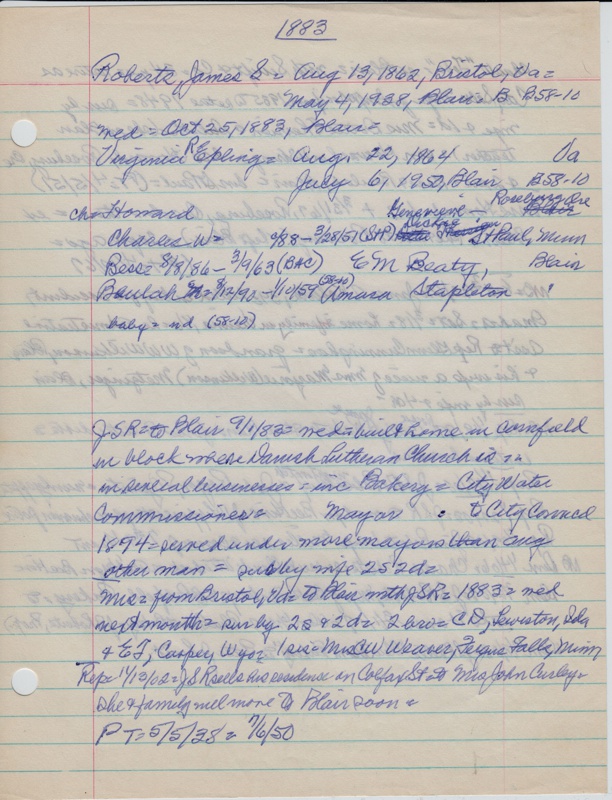 1883
Roberts, James S = Aug 13, 1862, Bristol, Va =
May 4, 1938, Blair = B B58-10
med = Oct 25, 1883, Blair =
Virginia R Epling = Aug. 22, 1864 Va
July 6, 1950, Blair B58-10
ch = Howard Genevieve - Roseburg Ore
Charles W = - 3/28/57 (StP) St Paul, Minn
Bess = 8/8/86 - 3/9/63 (BAC) E M Beaty, Blair
Beulah M = 8/12/90 - 1/10/59 (58-10) Amara Stapleton
baby = nd (58-10)
JSR = to Blair 9/1/83 = med = built home in cornfield
in block where Danish Lutheran Church is =
in several businesses = inc Bakery = City Water
Commissioner = Mayor : to City Council
1894 = served under more mayors than any
other man = sur by wife 2s 2d =
Mrs = from Bristol, Va = to Blair mth JSR = 1883 = med
next month = sur by = 2s & 2d = 2 bro = CD, Lewiston, Ida
& EJ, Casper Wyo = 1 sis = Mrs CW Weaver, Fergus Falls, Minn
Rep = 1/13/02 = JSR sells his residence on Colfax St to Mrs John Curley =
she & family wil move to Blair soon =
PT = 5/5/38 = 7/6/50